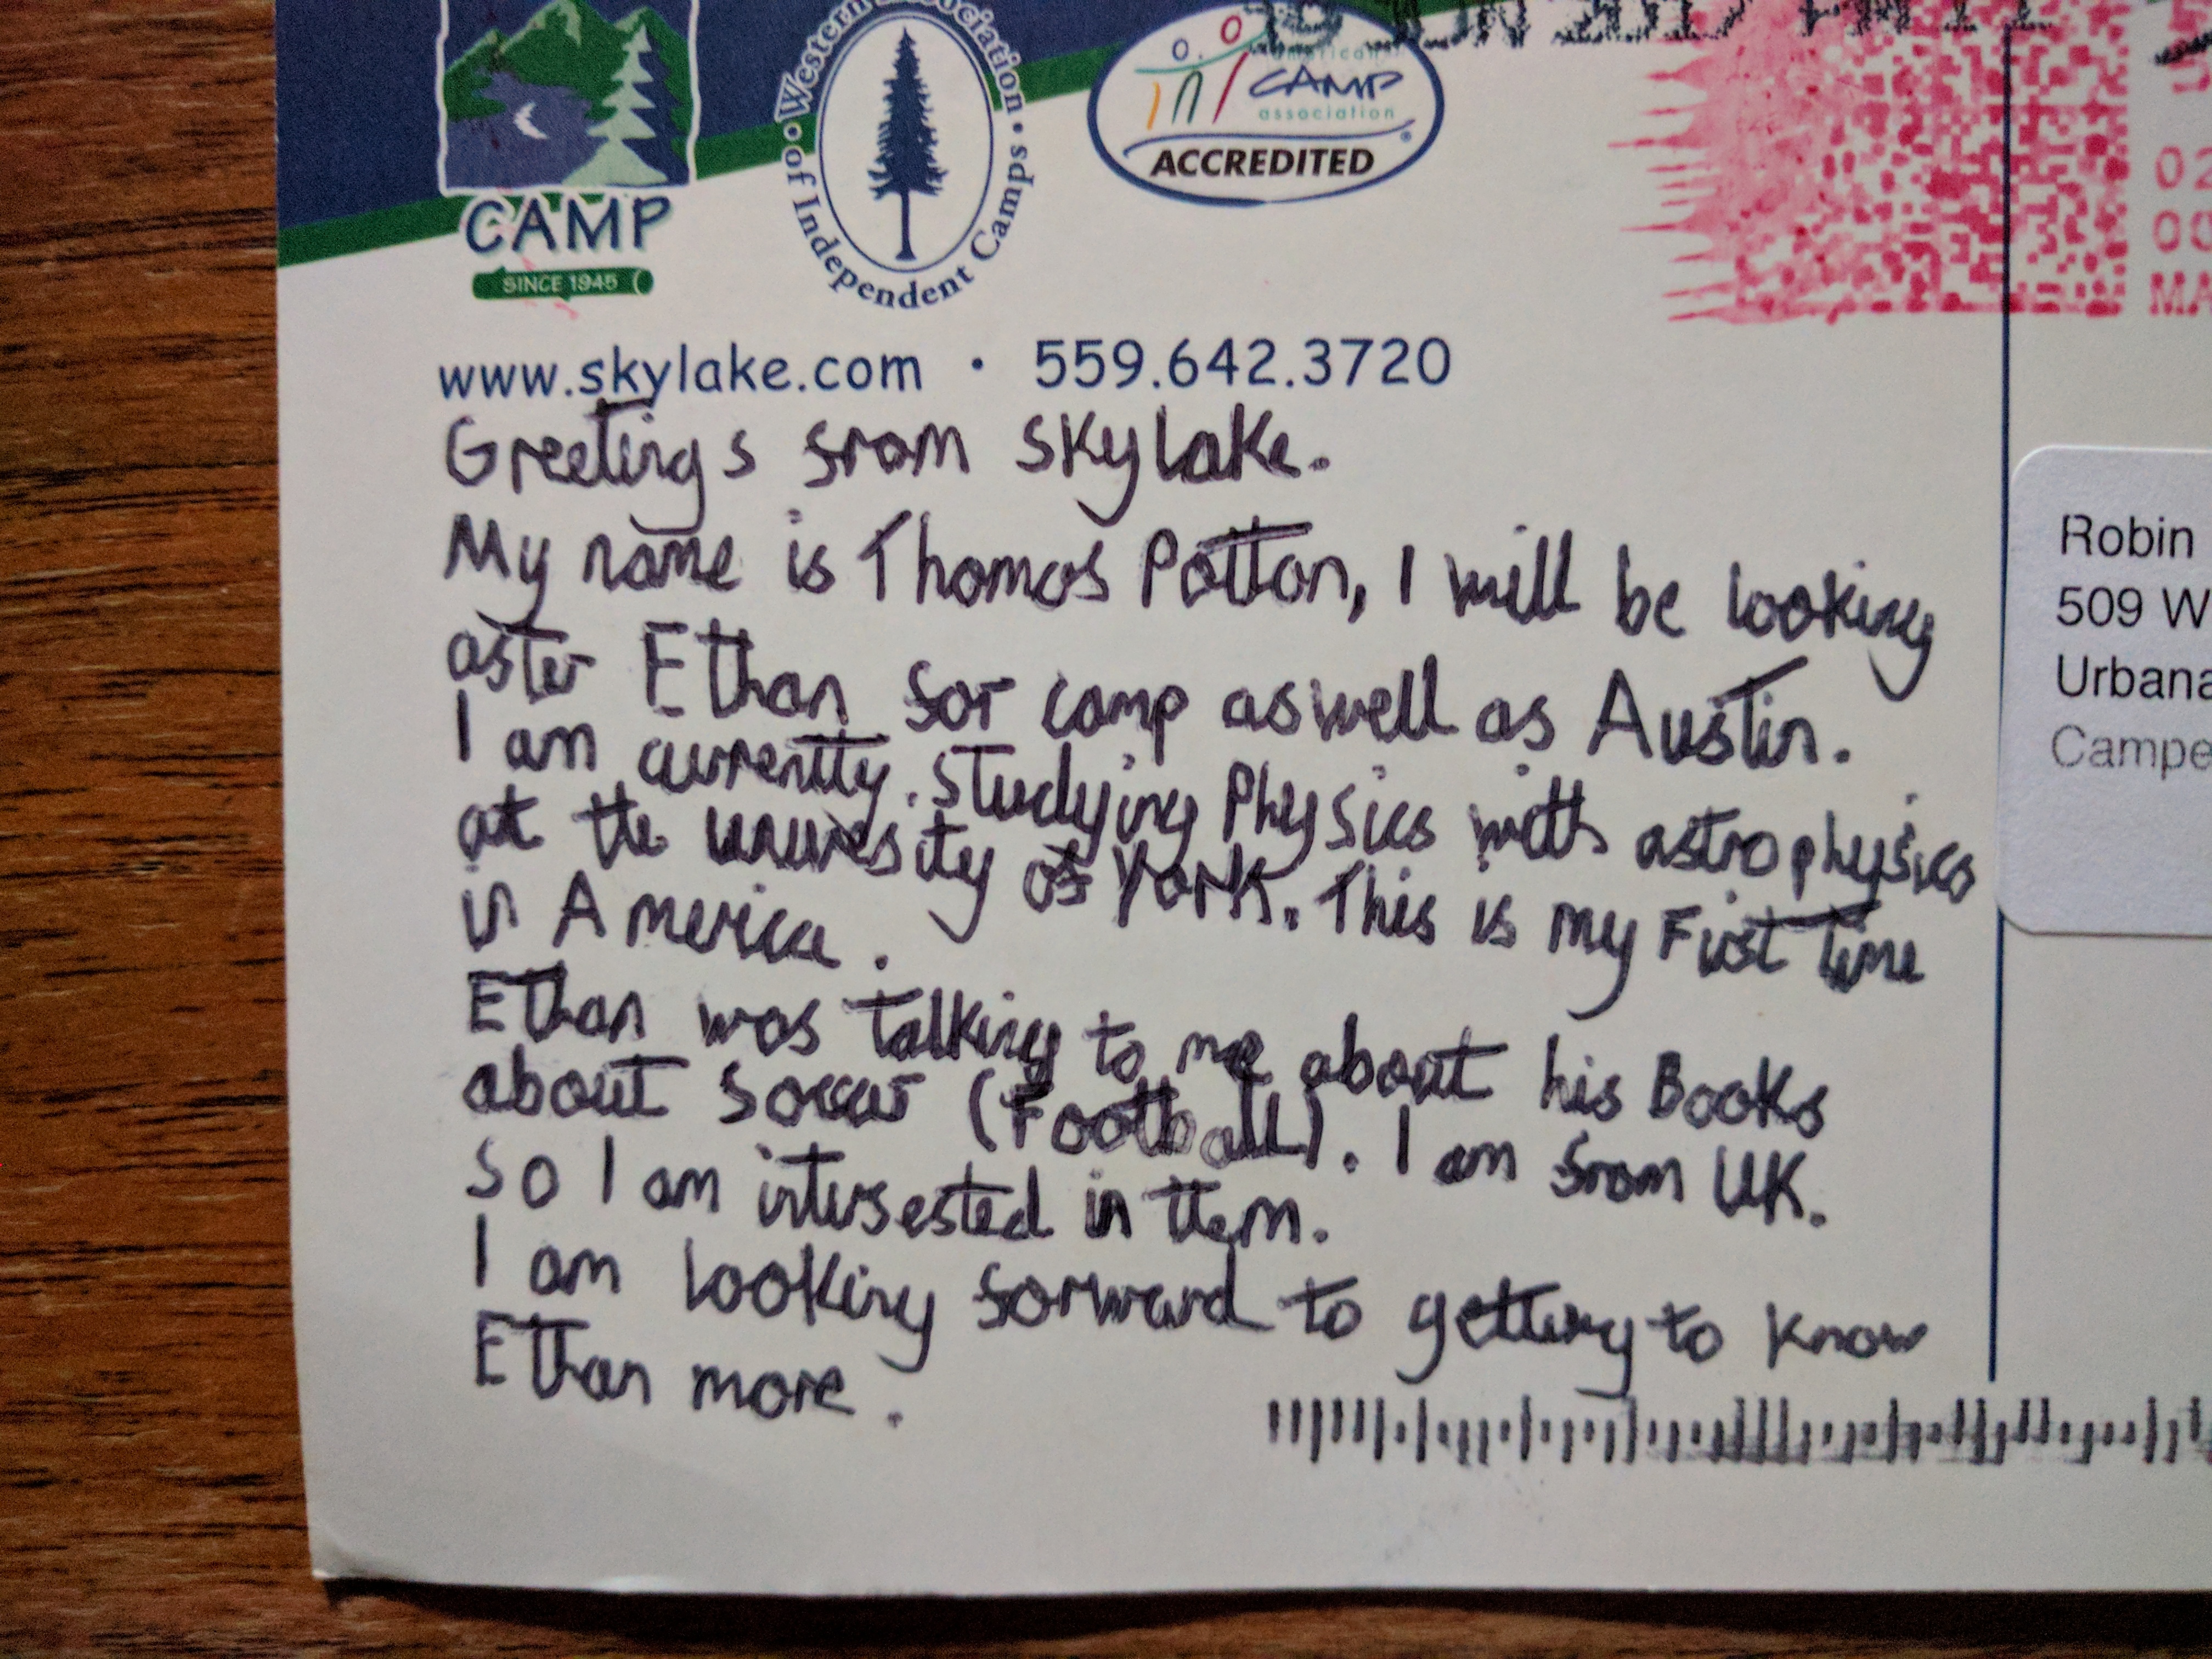 CAMP
SINCE 1945
Western Association
of Independent Camps
american
CAMP
association
ACCREDITED
www.skylake.com · 559.642.3720
02
00
MA
Greetings from Skylake.
My name is Thomas Patton, I will be looking
after Ethan for camp aswell as Austin.
I am currently studying Physics with astrophysics
at the university of York. This is my First time
in America.
Ethan was talking to me about his Books
about soccer (Football). I am from UK.
So I am interested in them.
I am looking forward to getting to know
Ethan more.
Robin
509 W
Urbana
Campe